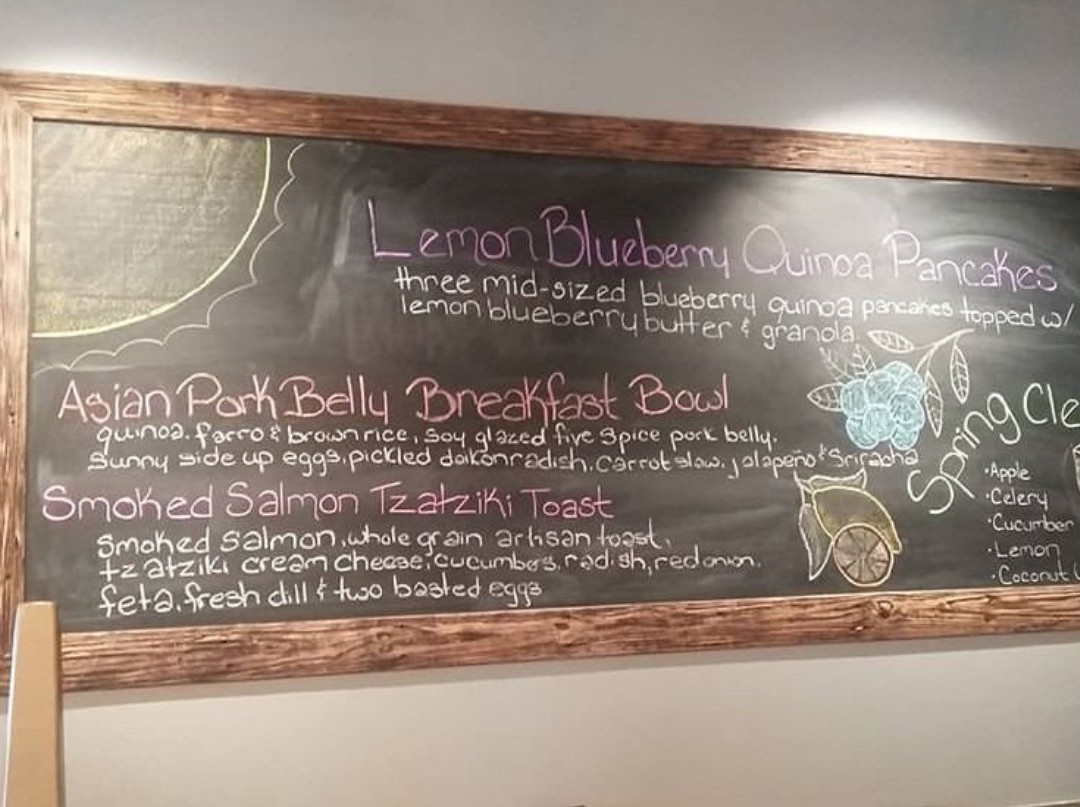 Lemon Blueberry Quinoa Pancakes
three mid-sized blueberry quinoa pancakes topped w/
lemon blueberry butter & granola.
Asian Pork Belly Breakfast Bowl
quinoa. farro & brown rice, soy glazed five spice pork belly.
sunny side up eggs, pickled daikon radish, carrot slaw, jalapeño & Sriracha
Smoked Salmon Tzatziki Toast
smoked salmon, whole grain artisan toast,
tzatziki cream cheese, cucumbers, radish, red onion.
feta, fresh dill & two basted eggs
Spring Cle
·Apple
·Celery
·Cucumber
·Lemon
·Coconut